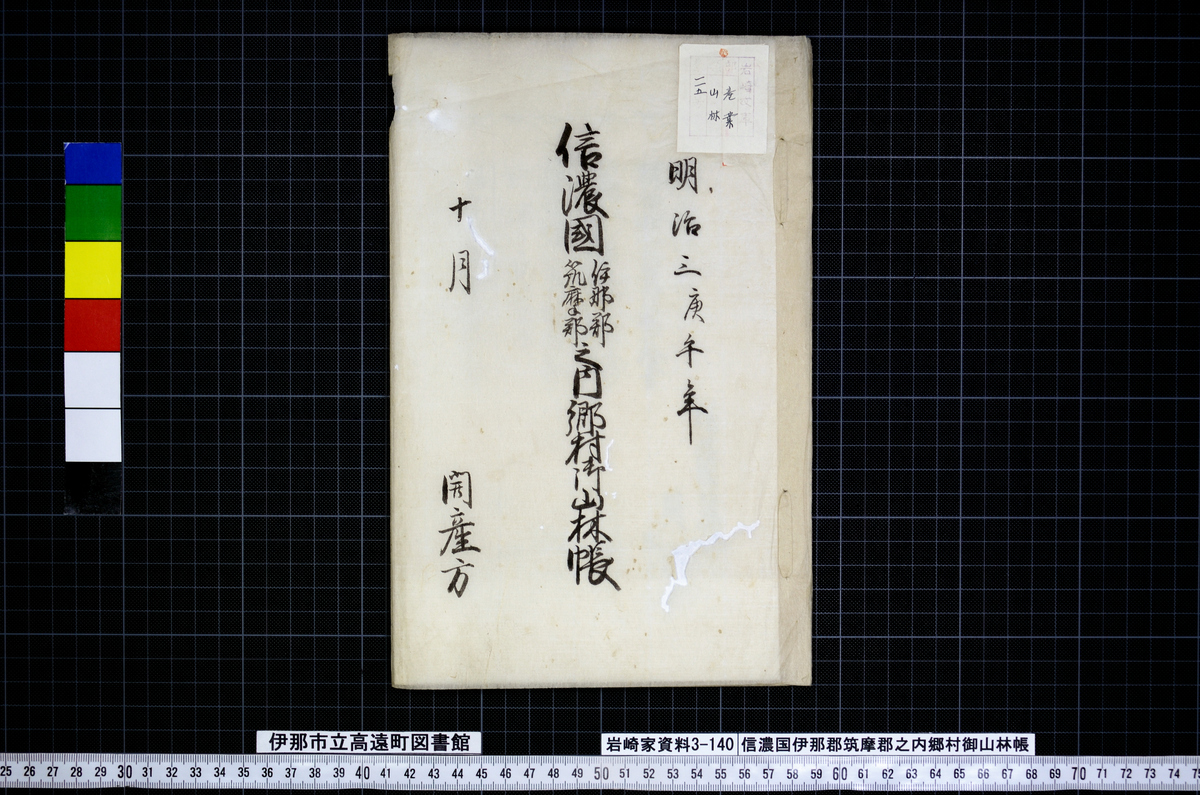 岩崎家
産業
山林
二五
明治三庚午年
信濃國伊那郡筑摩郡之内郷村御山林帳
十月
開産方
伊那市立高遠町図書館
岩崎家資料3-140
信濃国伊那郡筑摩郡之内郷村御山林帳
25 26 27 28 29 30 31 32 33 34 35 36 37 38 39 40 41 42 43 44 45 46 47 48 49 50 51 52 53 54 55 56 57 58 59 60 61 62 63 64 65 66 67 68 69 70 71 72 73 74 75